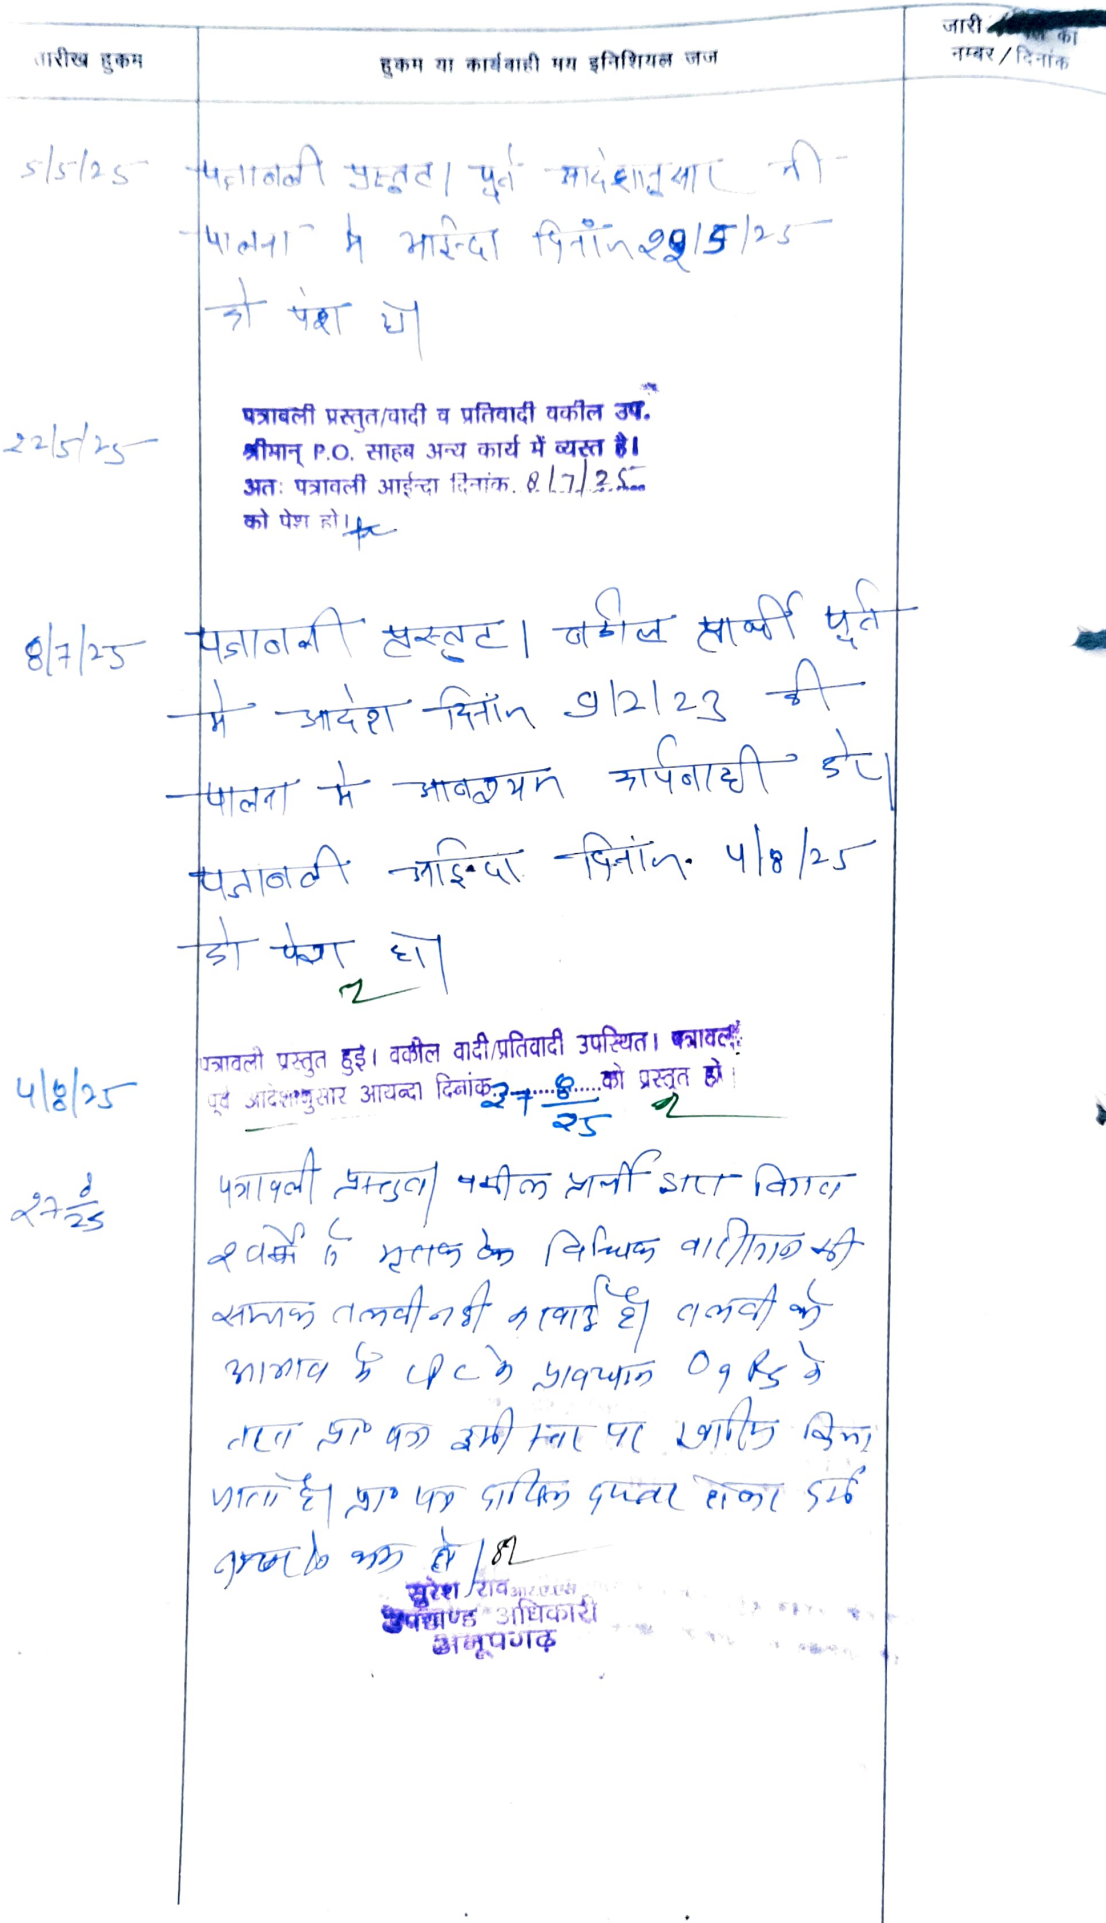 तारीख हुकम
हुकम या कार्यवाही मय इनिशियल जज
जारी का
नम्बर/दिनांक
5/5/25
पत्रावली प्रस्तुत। पूर्व आदेशानुसार की
पालना मे आईन्दा दिनाँक 22/5/25
को पेश हो।
22/5/25
पत्रावली प्रस्तुत/वादी व प्रतिवादी वकील उप.
श्रीमान् P.O. साहब अन्य कार्य में व्यस्त है।
अतः पत्रावली आईन्दा दिनांक. 8/7/25
को पेश हो।
8/7/25
पत्रावली प्रस्तुत। वकील प्रार्थी पूर्व
मे आदेश दिनाँक 9/2/23 की
पालना मे आवश्यक कार्यवाही करे।
पत्रावली आईन्दा दिनांक. 4/8/25
को पेश हो।
4/8/25
पत्रावली प्रस्तुत हुई। वकील वादी/प्रतिवादी उपस्थित। पत्रावली
पूर्व आदेशानुसार आयन्दा दिनांक 27 8/25 को प्रस्तुत हो।
27 8/25
पत्रावली प्रस्तुत। वकील प्रार्थी द्वारा विगत
2 वर्षो से मृतक के विधिक की
सम्यक तलवी नही करवाई है। तलवी के
अभाव मे CPC के प्रावधान O9 R5 के
तहत प्रा० पत्र इसी स्तर पर खारिज किया
जाता है। प्रा० पत्र दाखिल दफ्तर होकर दर्ज
नम्बर से कम हो।
सुरेश राव
उपखण्ड अधिकारी
अनूपगढ़